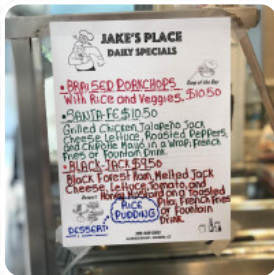 JAKE'S PLACE
DAILY SPECIALS
Soup of the Day
• BRAISED PORKCHOPS
With Rice and Veggies. $10.50
• SANTA-FE $10.50
Grilled Chicken, Jalapeño Jack
Cheese, Lettuce, Roasted Peppers,
and Chipotle Mayo, in a Wrap, French
Fries or Fountain Drink
• BLACK-JACK $9.50
Black Forest Ham, Melted Jack
Cheese, Lettuce, Tomato, and
Honey Mustard on a Toasted
Pita, French Fries
or Fountain
Drink
RICE
PUDDING
DESSERT